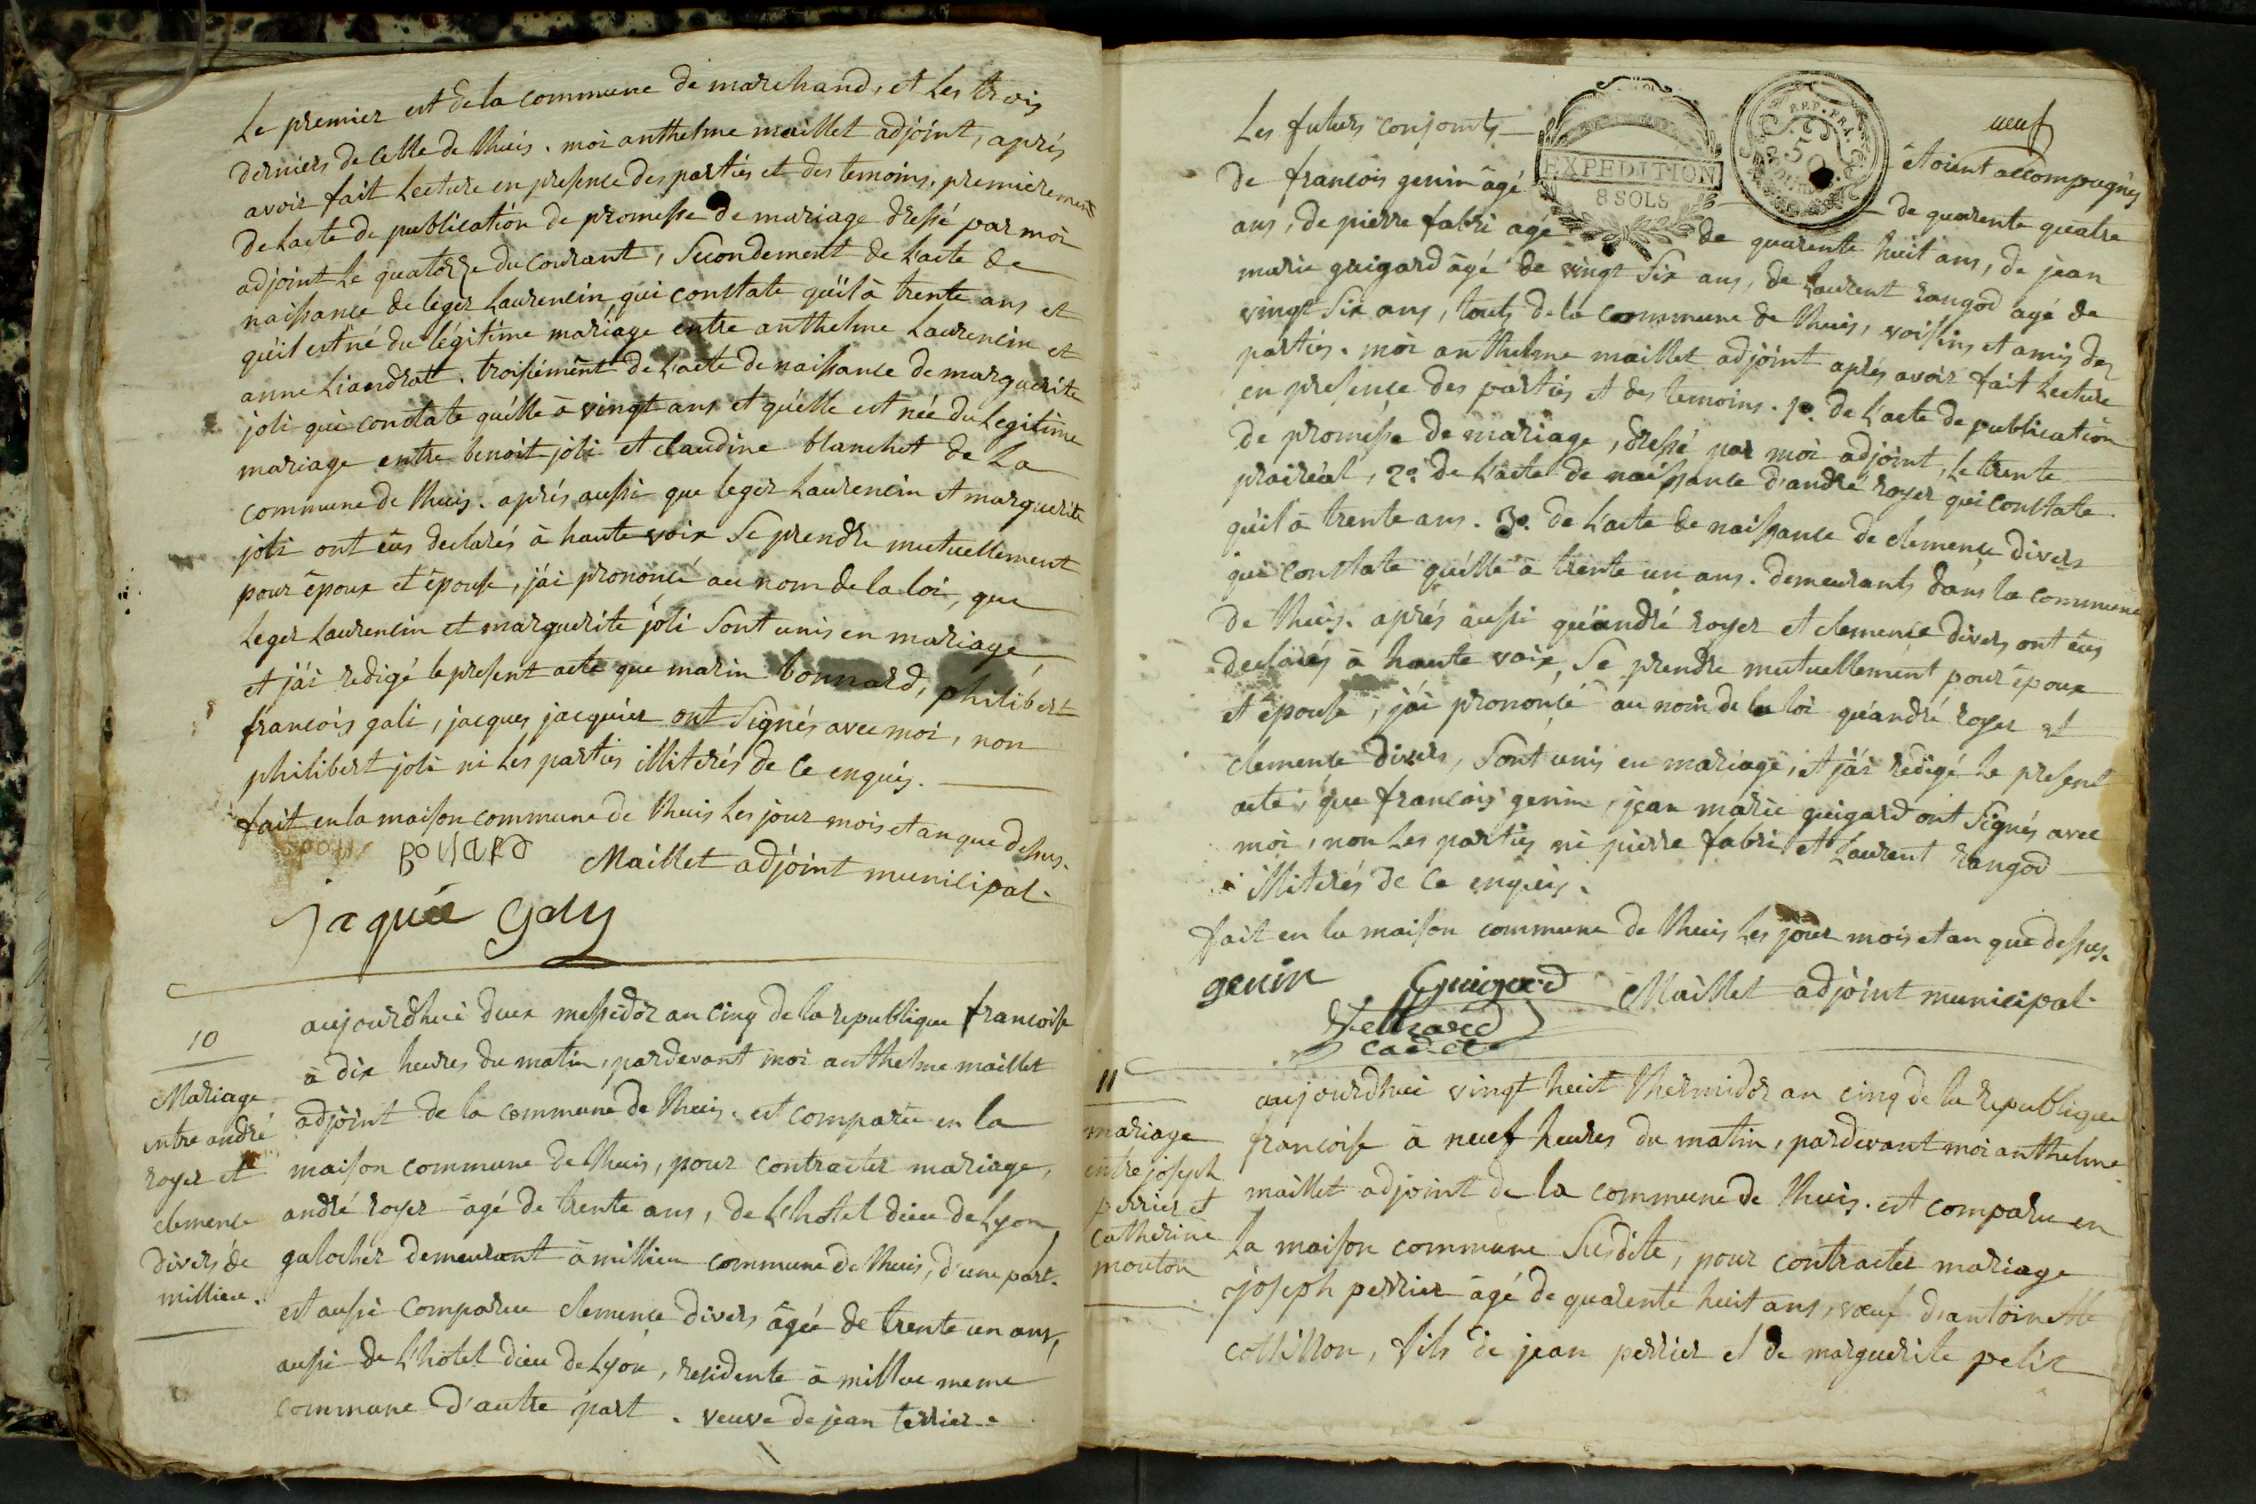 Le premier est de la commune de marchand, et les trois
derniers de celle de thuis. moi anthelme maillet adjoint, aprés
avoir fait lecture en presence des parties et des temoins, premierement
de l'acte de publication de promesse de mariage dressé par moi
adjoint le quatorze du courant, secondement de l'acte de
naissance de leger laurencin, qui constate qu'il à trente ans et
qu'il est né du légitime mariage entre anthelme laurencin et
anne liaudrat. troisiément de l'acte de naissance de marguerite
joli qui constate qu'elle à vingt ans et qu'elle est née du legitime
mariage entre benoit joli et claudine blanchet de la
commune de thuis. aprés aussi que leger laurencin et marguerite
joli ont eus declarés à haute voix se prendre mutuellement
pour époux et épouse, j'ai prononcé au nom de la loi, que
leger laurencin et marguerite joli sont unis en mariage
et j'ai redigé le present acte que marin bonnard, philibert
francois gali, jacques jacquier ont signés avec moi, non
philibert joli ni les parties illiterés de ce enquis.
fait en la maison commune de thuis les jour mois et an que dessus.
Maillet adjoint municipal.
jaquié galy
10
Mariage
entre andré
royer et
clemence
divers de
millieu.
aujourdhui deux messidor an cinq de la republique francoise
à dix heures du matin, pardevant moi anthelme maillet
adjoint de la commune de thuis. est comparu en la
maison commune de thuis, pour contracter mariage,
andré royer âgé de trente ans, de l'hotel dieu de lyon,
galocher demeurant à millieu commune de thuis, d'une part.
est aussi comparue clemence divers âgée de trente un ans,
aussi de l'hotel dieu de lyon, residente à millue meme
commune d'autre part. veuve de jean terrier.
neuf
Les futurs conjoints étoient accompagnés
EXPEDITION
8 SOLS
REP. FRA
50
de francois genin âgé de quarente quatre
ans, de pierre fabri agé de quarente huit ans, de jean
marie guigard âgé de vingt six ans, de laurent rangod agé de
vingt six ans, touts de la commune de thuis, voisins et amis des
parties. moi anthelme maillet adjoint aprés avoir fait lecture
en presence des parties et des temoins. 1º. de l'acte de publication
de promesse de mariage, dressé par moi adjoint, le trente
prairéal, 2º. de l'acte de naissance d'andré royer qui constate
qu'il à trente ans. 3º. de l'acte de naissance de clemence divers
qui constate qu'elle à trente un ans. demeurants dans la commune
de thuis. aprés aussi qu'andré royer et clemence divers ont eus
declarés à haute voix, se prendre mutuellement pour époux
et épouse, j'ai prononcé au nom de la loi qu'andré royer et
clemence divers, sont unis en mariage, et j'ai redigé le present
acte, que francois genin, jean marie guigard ont signés avec
moi, non les parties ni pierre fabri et laurent rangod
illiterés de ce enquis.
fait en la maison commune de thuis les jour mois et an que dessus.
genin Guigard Maillet adjoint municipal.
cadet
11
mariage
entre joseph
perrier et
catherine
mouton
aujourdhui vingt huit thermidor an cinq de la republique
francoise à neuf heures du matin, pardevant moi anthelme
maillet adjoint de la commune de thuis. est comparu en
la maison commune susdite, pour contracter mariage
joseph perrier âgé de quarente huit ans, vœuf d'antoinette
cottillon, fils de jean perrier et de marguerite petit